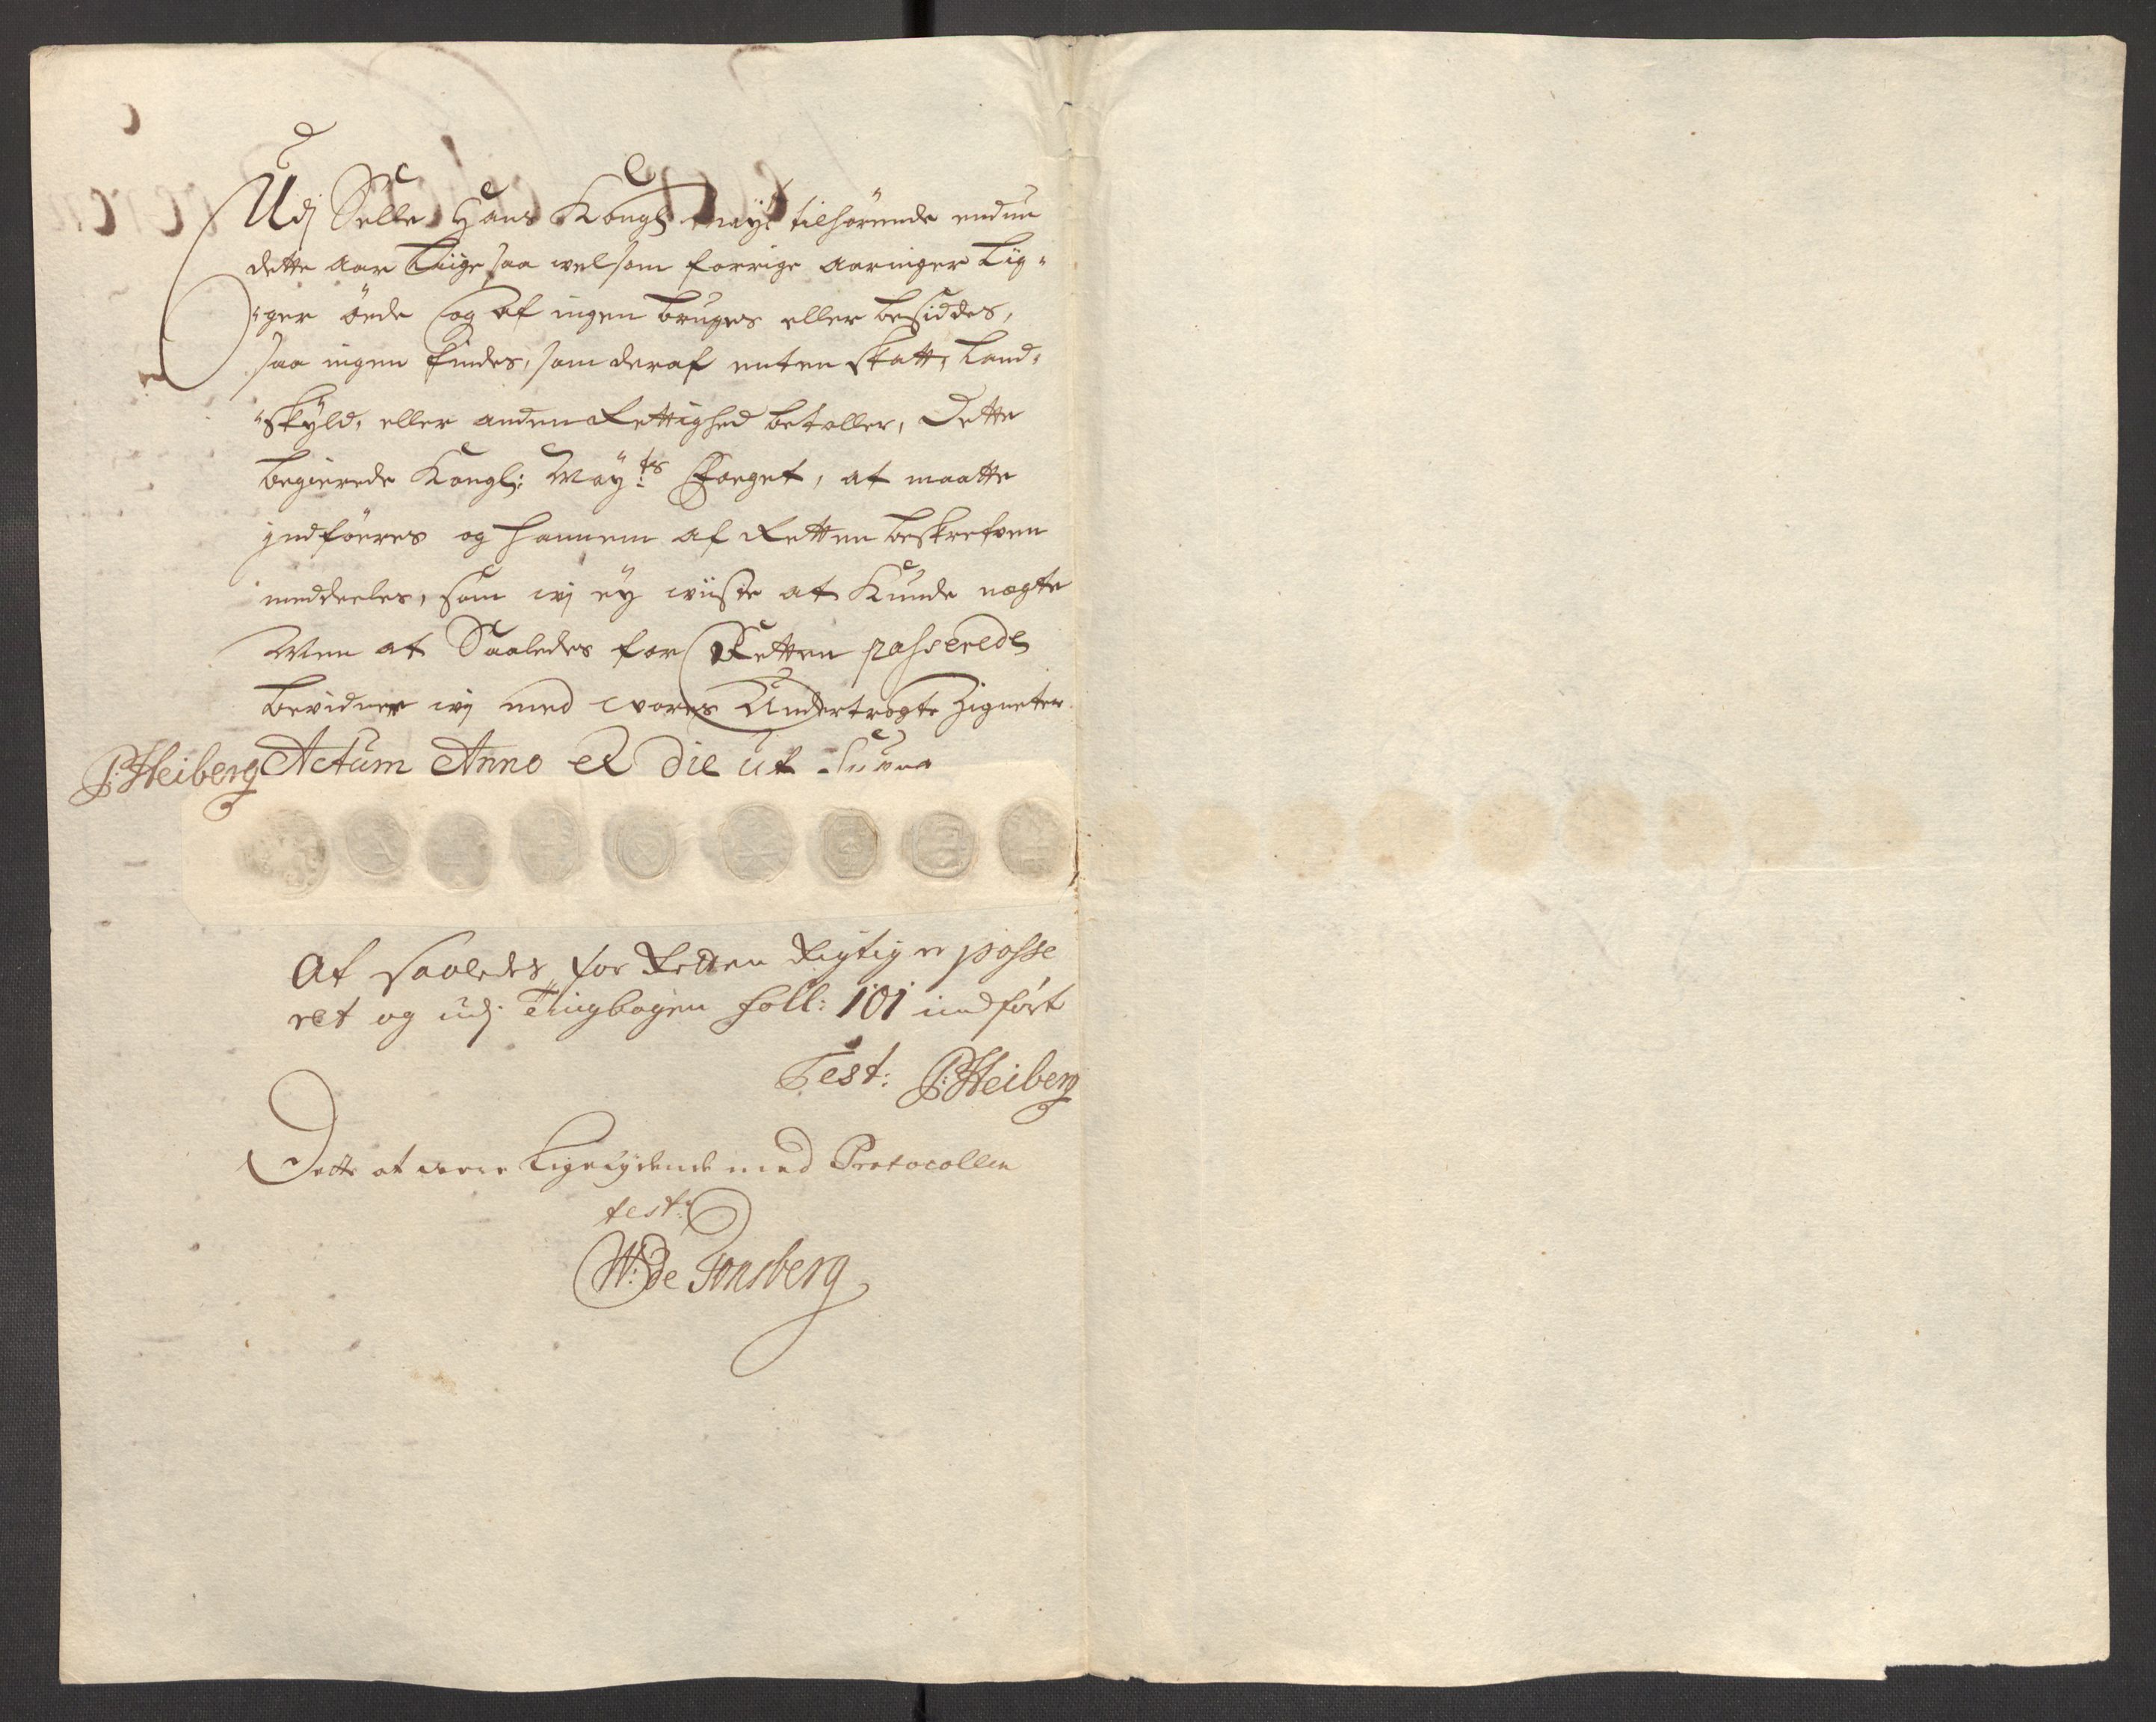 Udj Selle Hans Kongl mayt tilhörende endnu
dette aar liige saa vel som forrige aaringer lig-
ger öede og af ingen bruges eller besiddes,
saa ingen findes, som deraf enten skatt, land-
skyld, eller anden Rettighed betaller, Dette
begierede Kongl: May:ts Foeget, at maatte
indföeres og hannem af Retten beskrefven
meddeeles, som wj ey wiiste at Kunde negte
Men at Saaledes for Retten passerede
bevidner wj med vores Undertrögte Zigneter
P: Heiberg Actum Anno et Die ut Supra
At saaledes for Retten Rigtig er passe
ret og udj Tingbogen foll: 101 indfört
Test: P: Heiberg
Dette at vere ligelydende med Protocollen
test:
W: De Tonsberg